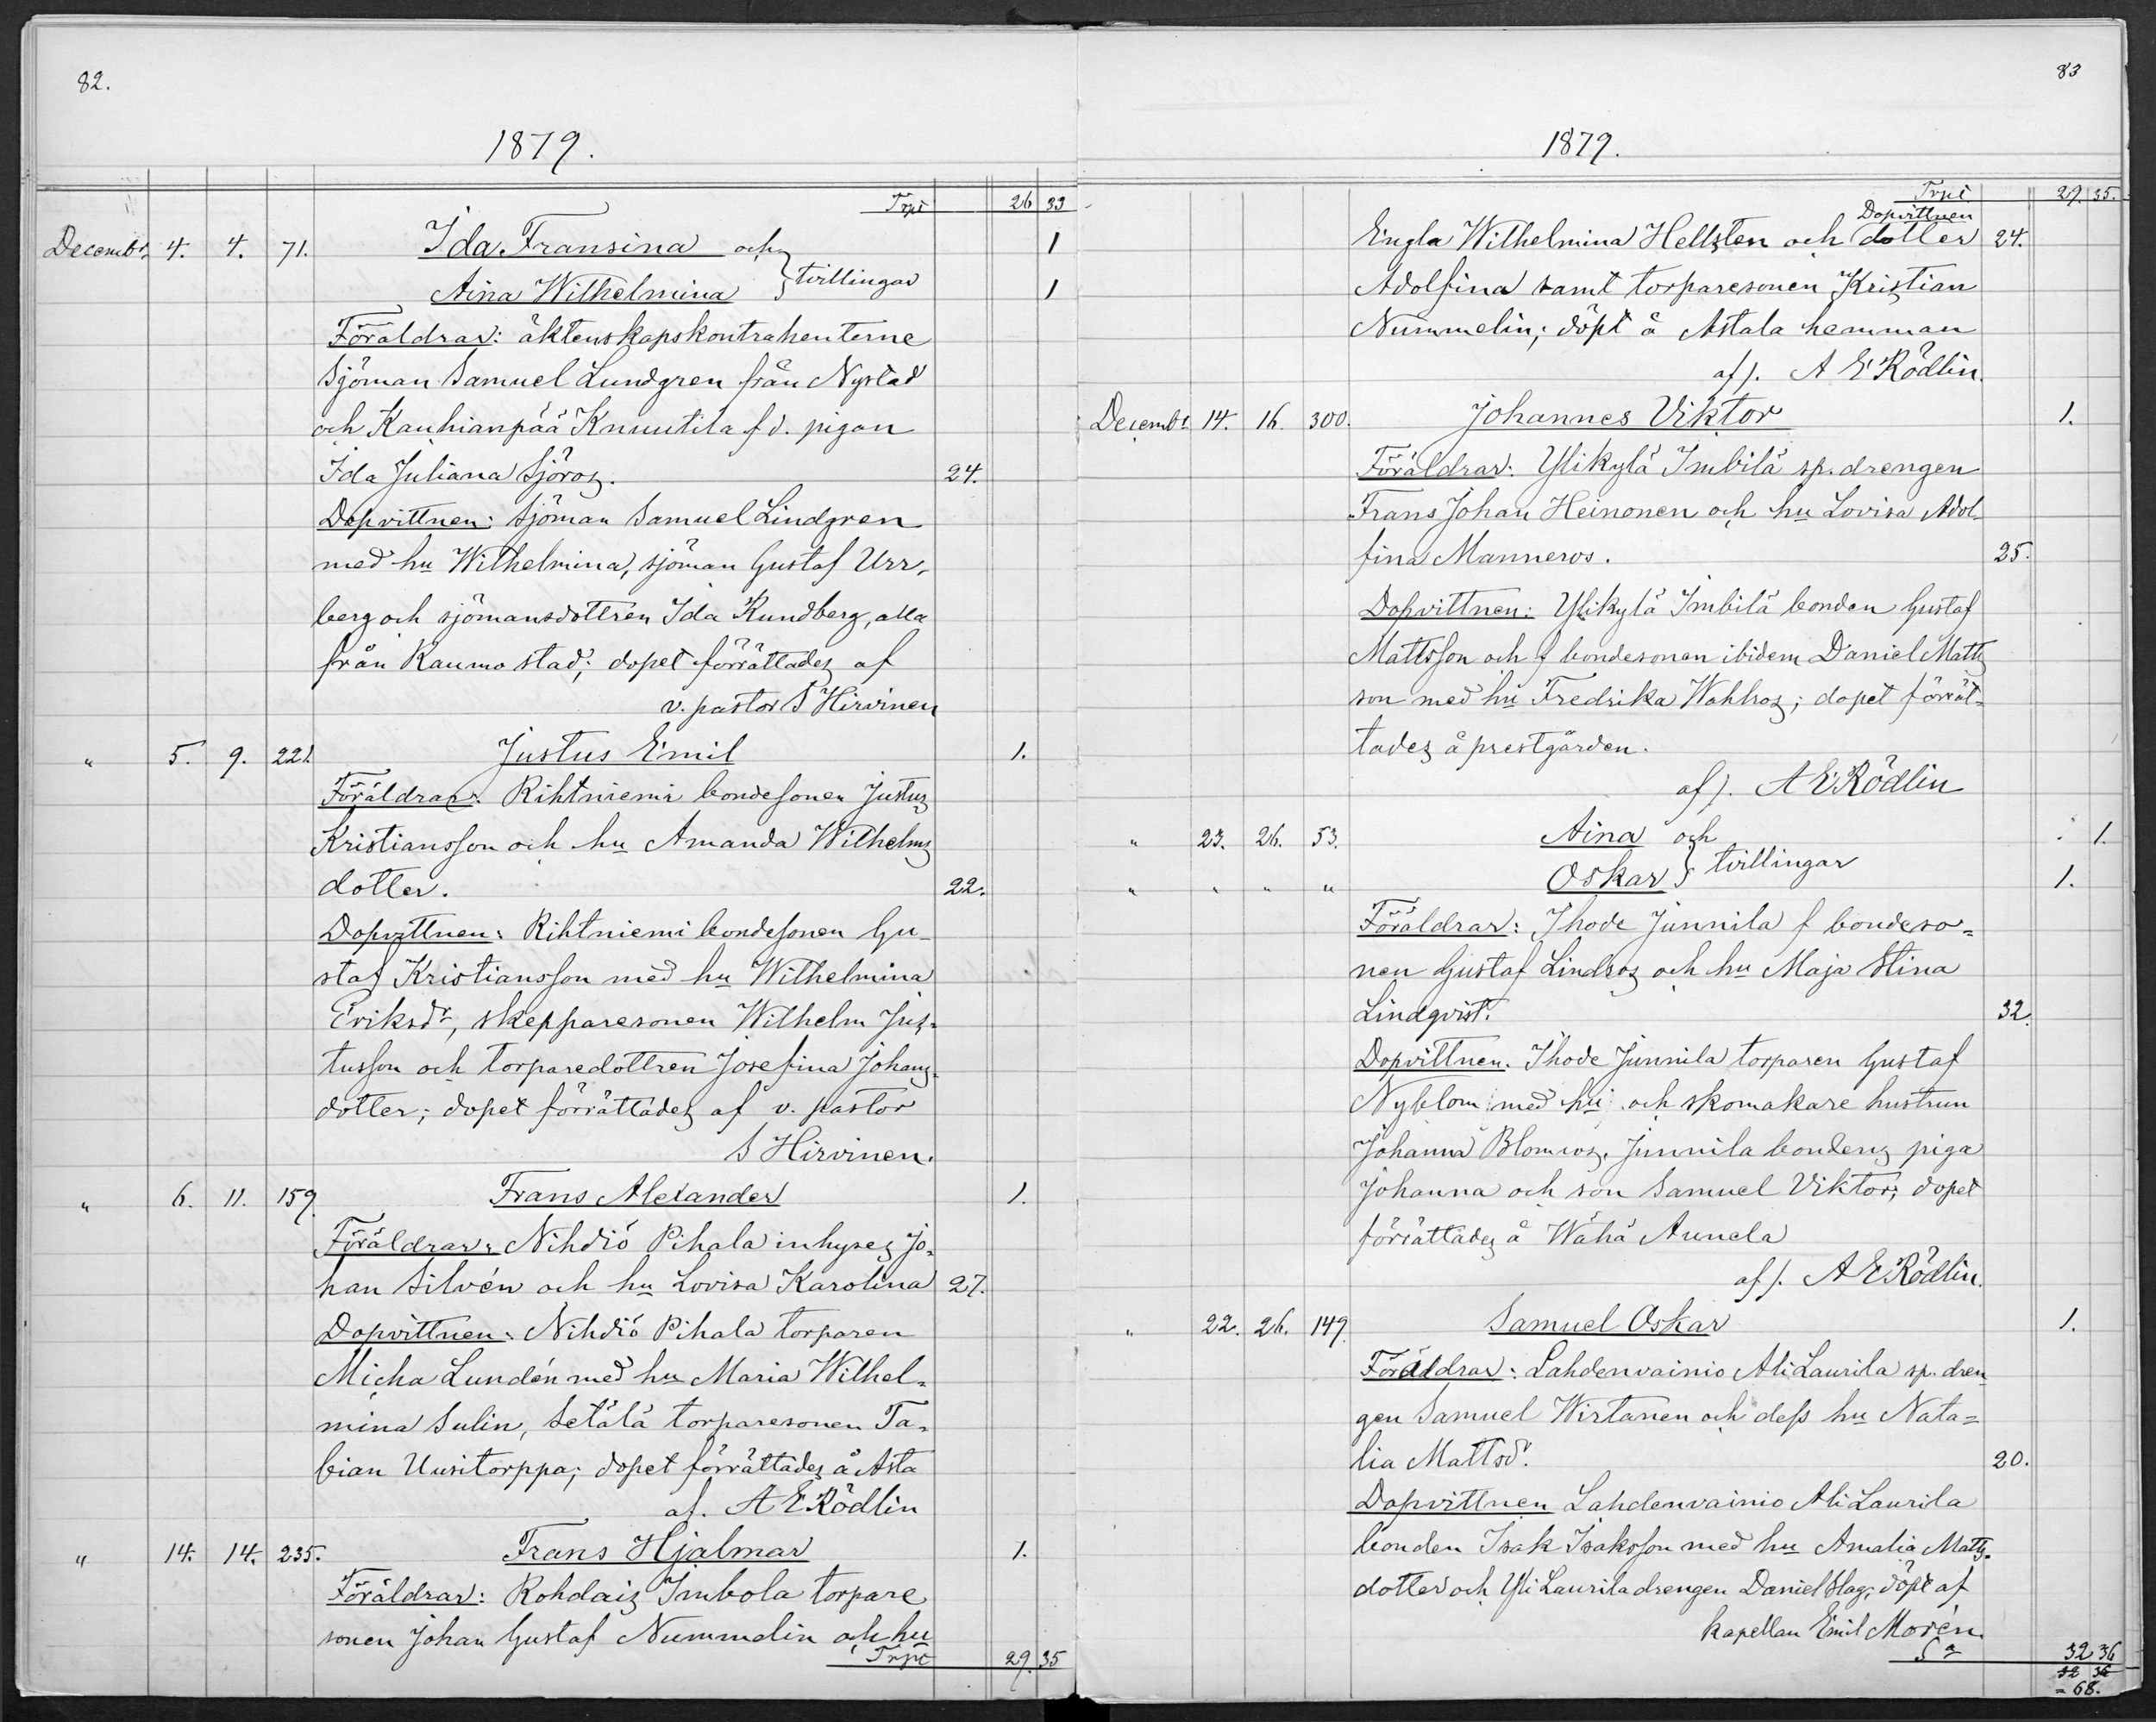 82.
1879.
Trpt 26 33
Decembr 4. 4. 71. Ida Fransina och 1
Aina Wilhelmina } tvillingar 1
Föräldrar: äktenskapskontrahenterne
Sjöman Samuel Lundgren från Nystad
och Kauhianpää Knuutila f d. pigan
Ida Juliana Sjöros. 24.
Dopvittnen: Sjöman Samuel Lindgren
med hu Wilhelmina, sjöman Gustaf Urr-
berg och sjömansdottren Ida Rundberg, alla
från Raumo stad; dopet förrättades af
v. pastor S Hirvinen
" 5. 9. 221. Justus Emil 1.
Föräldrar: Rihtniemi bondesonen Justus
Kristiansson och hu Amanda Wilhelms
dotter. 22.
Dopvittnen: Rihtniemi bondesonen Gu-
staf Kristiansson med hu Wilhelmina
Eriksdr, skepparesonen Wilhelm Jus-
tusson och torparedottren Josefina Johans-
dotter; dopet förrättades af v. pastor
S Hirvinen.
" 6. 11. 159. Frans Alexander 1.
Föräldrar: Nihdiö Pihala inhyses Jo-
han Silvén och hu Lovisa Karolina 27.
Dopvittnen: Nihdiö Pihala torparen
Micha Lundén med hu Maria Wilhel-
mina Sulin, Setälä torparesonen Ta-
bian Uusitorppa; dopet förrättades å Asta
af. A E Rödlin
" 14. 14. 235. Frans Hjalmar 1.
Föräldrar: Rohdais Imbola torpare
sonen Johan Gustaf Nummelin och hu
Trpt 29. 35
83
1879.
Trpt 29. 35.
Dopvittnen
Engla Wilhelmina Hellsten och dotter 24.
Adolfina samt torparesonen Kristian
Nummelin; döpt å Astala hemman
af). A E Rödlin.
Decembr 14. 16. 300. Johannes Viktor 1.
Föräldrar: Ylikylä Imbilä sp. drengen
Frans Johan Heinonen och hu Lovisa Adol-
fina Manneros. 25.
Dopvittnen: Ylikylä Imbilä bonden Gustaf
Mattsson och f bondesonen ibidem Daniel Matts
son med hu Fredrika Wahlros; dopet förrät-
tades å prestgården.
af). A E Rödlin
" 23. 26. 53. Aina och 1.
" " " " Oskar } tvillingar 1.
Föräldrar: Ihode Junnila f bondeso-
nen Gustaf Lindros och hu Maja Stina
Lindqvist. 32.
Dopvittnen. Ihode Junnila torparen Gustaf
Nyblom med hu och skomakare hustrun
Johanna Blomros, Junnila bondens piga
Johanna och son Samuel Viktor; dopet
förrättades å Wähä Aunela
af). A E Rödlin.
" 22. 26. 149. Samuel Oskar 1.
Föräldrar: Lahdenvainio Ali Laurila sp. dren
gen Samuel Wirtanen och dess hu Nata-
lia Mattsd. 20.
Dopvittnen Lahdenvainio Ali Laurila
bonden Isak Isaksson med hu Amalia Matts-
dotter och Yli Laurila drengen Daniel Slag; döpt af
Kapellan Emil Morén.
Sa 32 36
32 36
= 68.